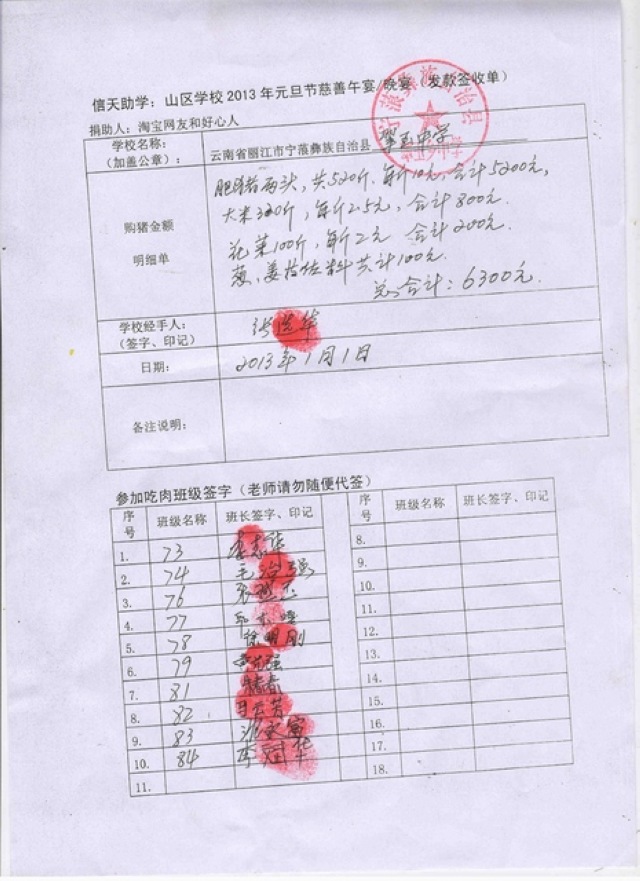 信天助学：山区学校2013年元旦节慈善午宴/晚宴（发款签收单）
捐助人：淘宝网友和好心人
学校名称：
（加盖公章）：
云南省丽江市宁蒗彝族自治县 翠玉中学
购猪金额
明细单
肥猪两头，共520斤，每斤10元，合计5200元，
大米320斤，每斤2.5元，合计800元.
花菜100斤，每斤2元 合计200元.
葱、姜等佐料共计100元.
总合计：6300元.
学校经手人：
（签字、印记）
日期：
2013年1月1日
备注说明：
参加吃肉班级签字（老师请勿随便代签）
序号 班级名称 班长签字、印记 序号 班级名称 班长签字、印记
1. 73 8.
2. 74 毛治强 9.
3. 76 10.
4. 77 11.
5. 78 徐明刚 12.
6. 79 13.
7. 81 14.
8. 82 15.
9. 83 16.
10. 84 17.
11. 18.